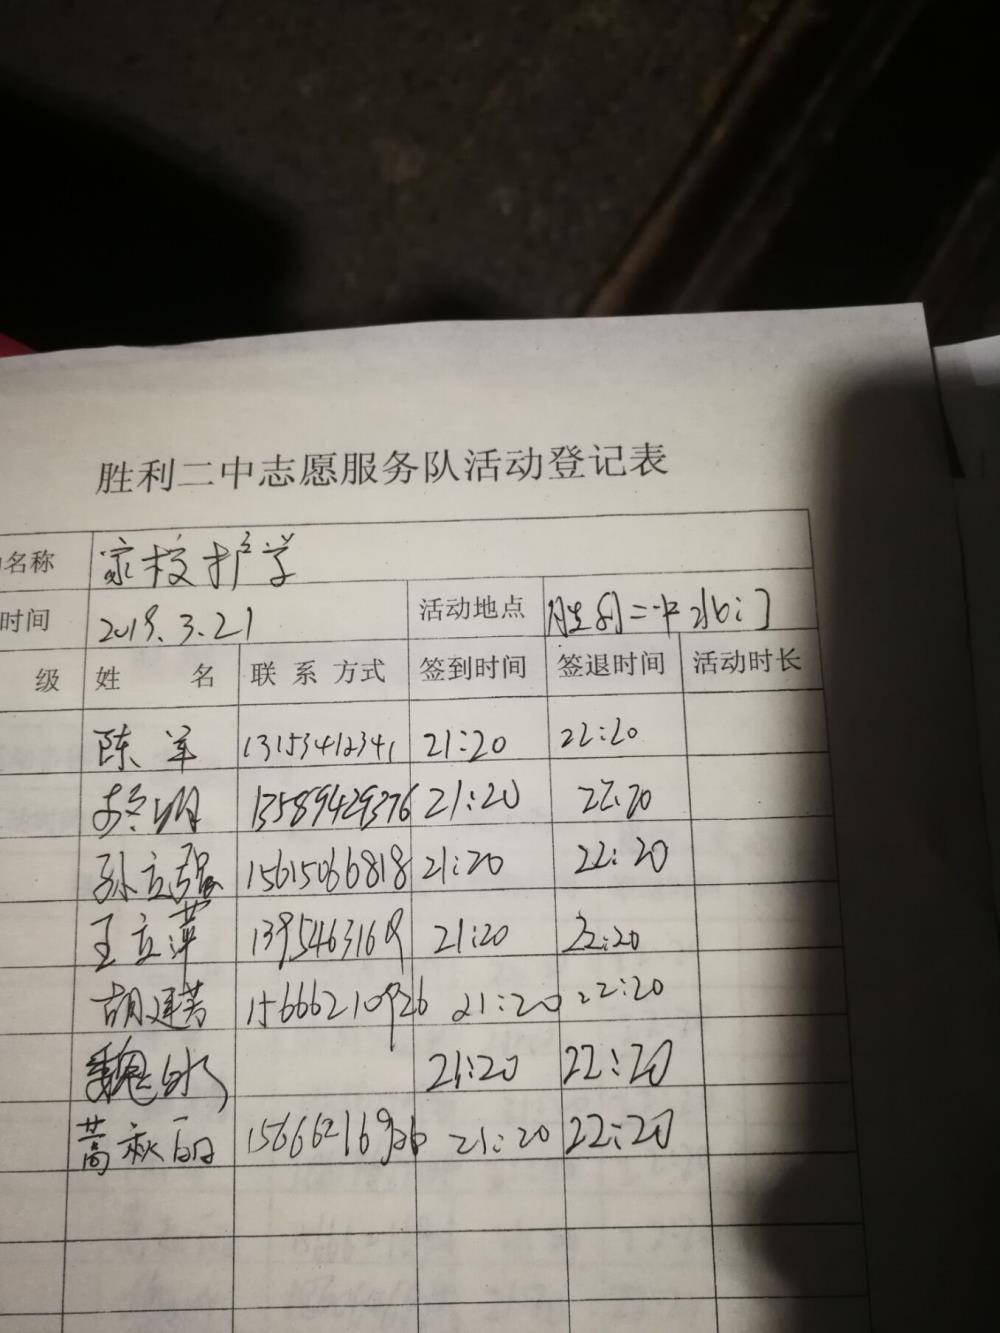 胜利二中志愿服务队活动登记表
名称 家校护学
时间 2019.3.21 活动地点 胜利二中北门
级 姓 名 联系方式 签到时间 签退时间 活动时长
陈军 13153412341 21:20 22:20
13589429376 21:20 22:20
孙立强 15615066818 21:20 22:20
王立萍 1395463169 21:20 22:20
胡建芳 15666210926 21:20 22:20
魏 21:20 22:20
蒿秋丽 15666216926 21:20 22:20